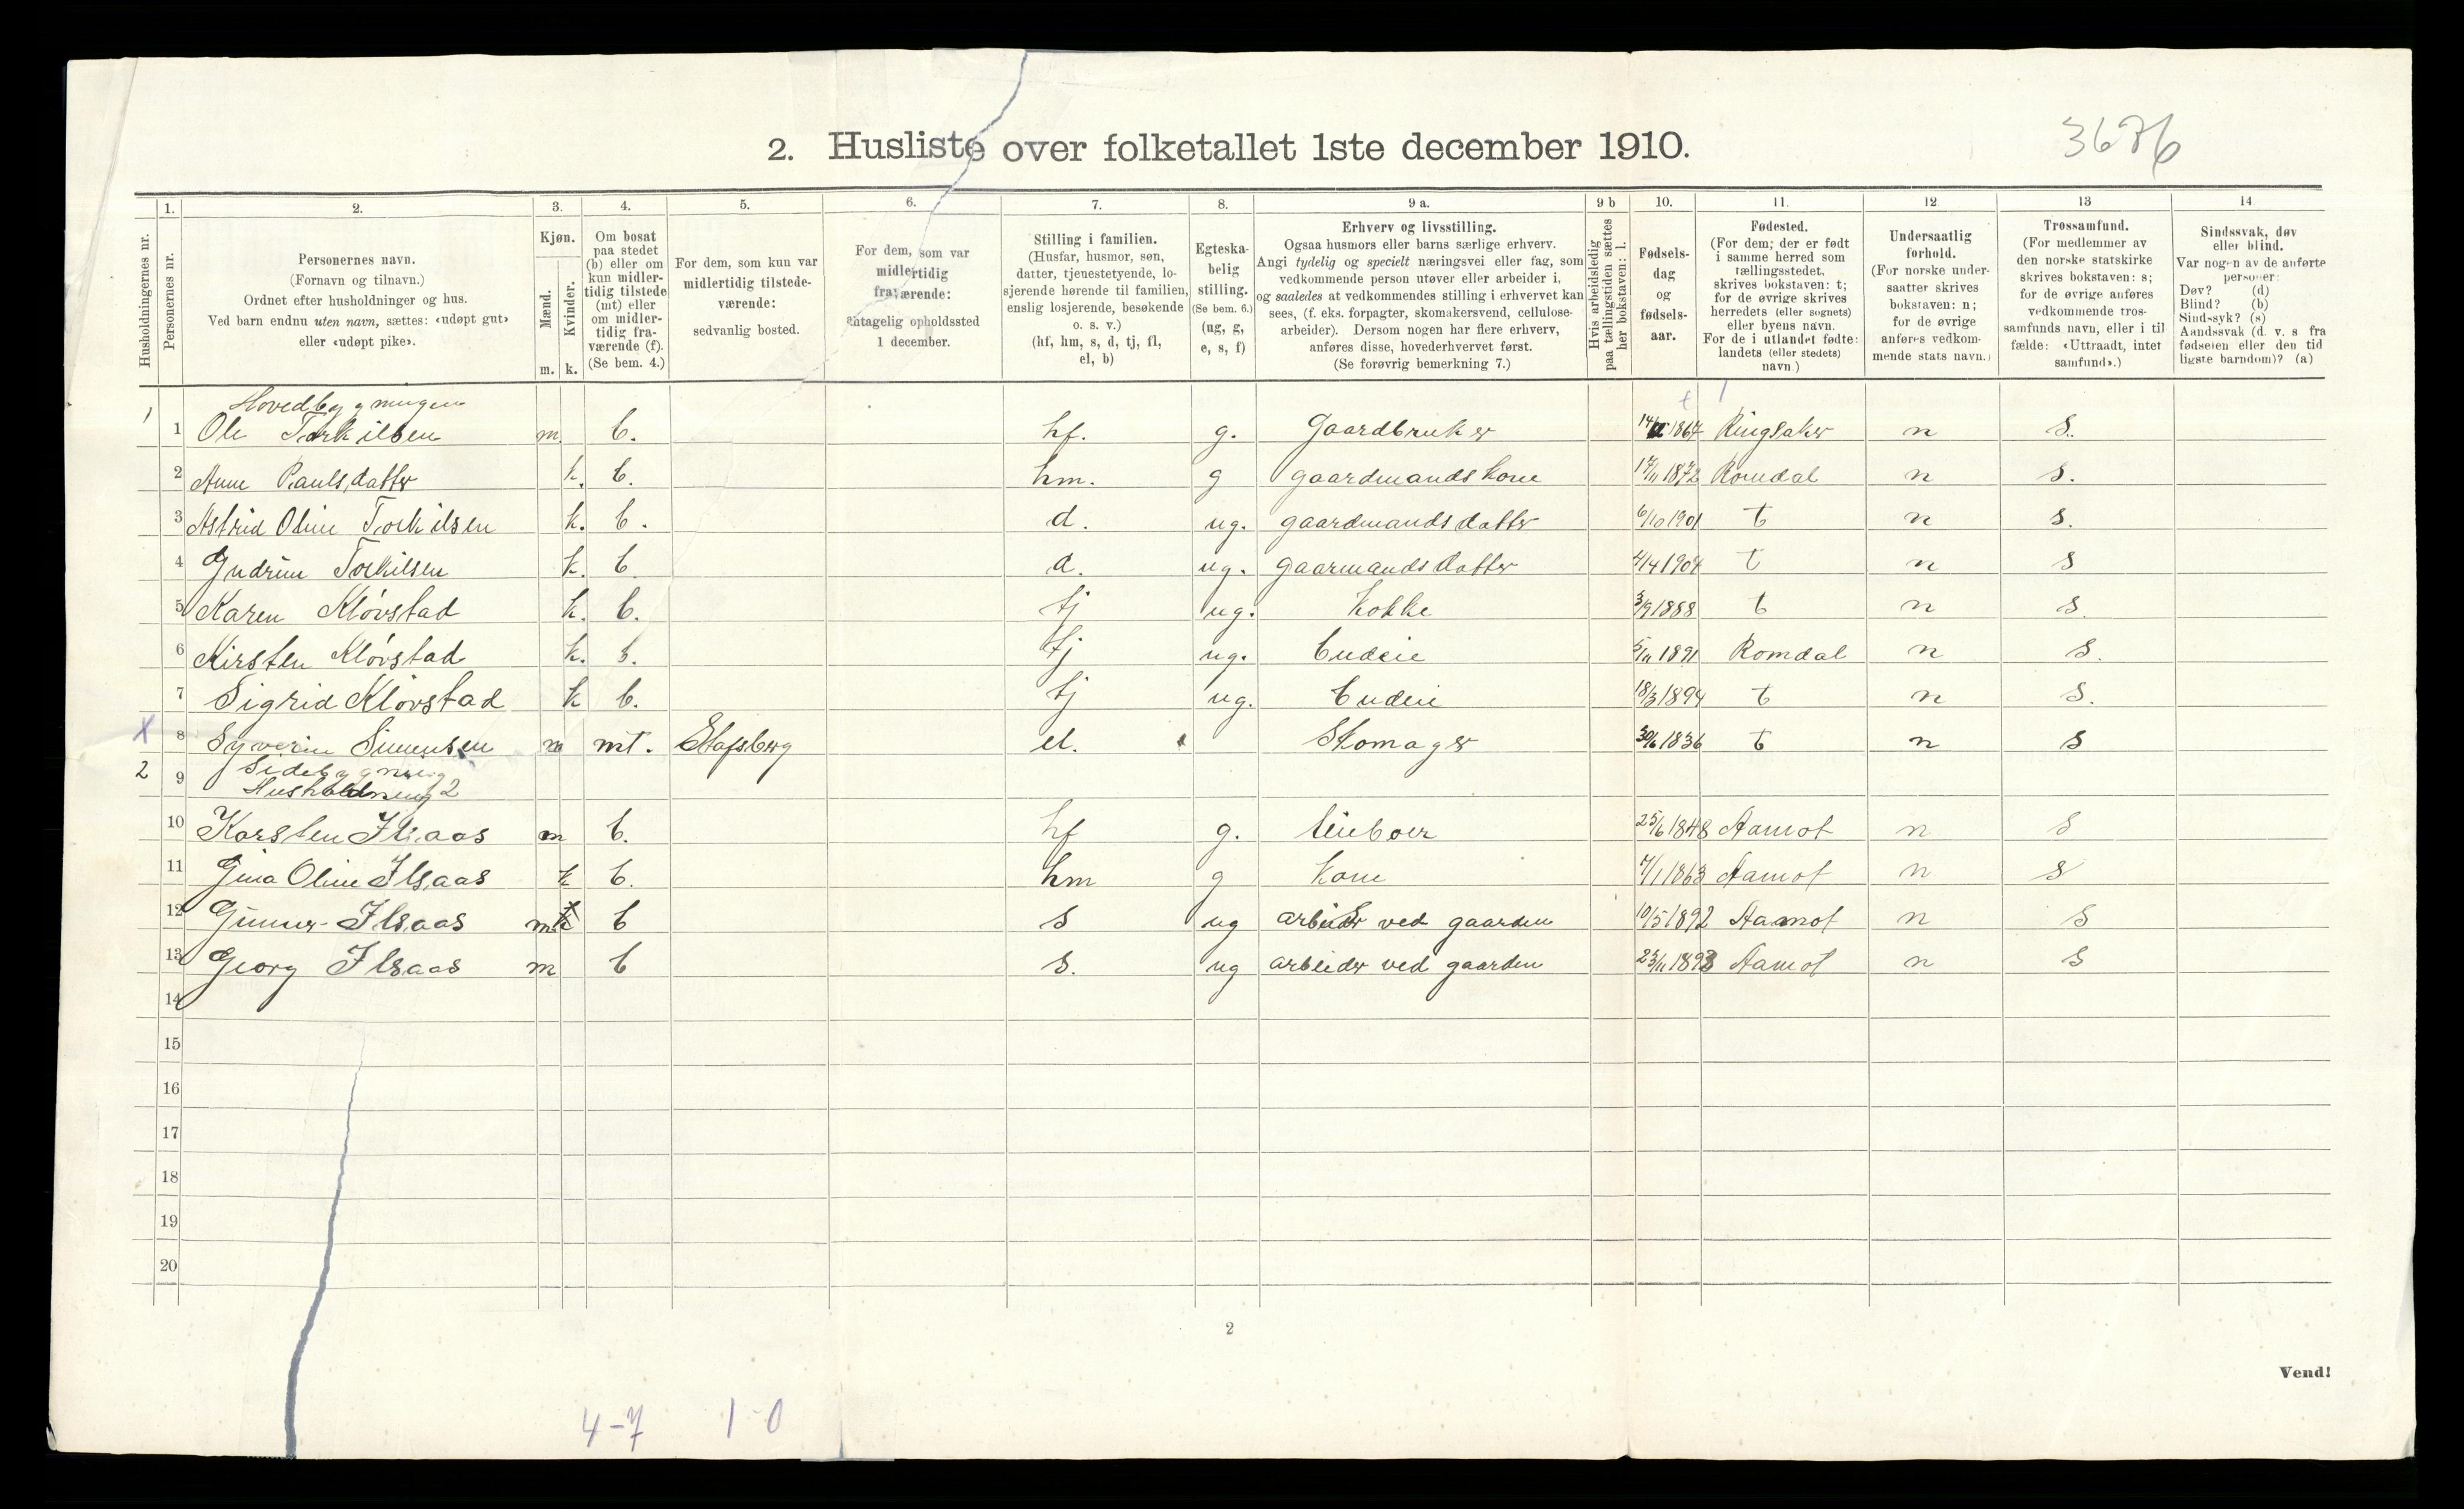 2. Husliste over folketallet 1ste december 1910.
3676
Husholdningernes nr.
1.
Personernes nr.
2.
Personernes navn.
(Fornavn og tilnavn.)
Ordnet efter husholdninger og hus.
Ved barn endnu uten navn, sættes: «udøpt gut»
eller «udøpt pike».
3.
Kjøn.
Mænd.
Kvinder.
m. k.
4.
Om bosat
paa stedet
(b) eller om
kun midler-
tidig tilstede
(mt) eller
om midler-
tidig fra-
værende (f).
(Se bem. 4.)
5.
For dem, som kun var
midlertidig tilstede-
værende:
sedvanlig bosted.
6.
For dem, som var
midlertidig
fraværende:
antagelig opholdssted
1 december.
7.
Stilling i familien.
(Husfar, husmor, søn,
datter, tjenestetyende, lo-
sjerende hørende til familien,
enslig losjerende, besøkende
o. s. v.)
(hf, hm, s, d, tj, fl,
el, b)
8.
Egteska-
belig
stilling.
(Se bem. 6.)
(ug, g,
e, s, f)
9 a.
Erhverv og livsstilling.
Ogsaa husmors eller barns særlige erhverv.
Angi tydelig og specielt næringsvei eller fag, som
vedkommende person utøver eller arbeider i,
og saaledes at vedkommendes stilling i erhvervet kan
sees, (f. eks. forpagter, skomakersvend, cellulose-
arbeider). Dersom nogen har flere erhverv,
anføres disse, hovederhvervet først.
(Se forøvrig bemerkning 7.)
9 b
Hvis arbeidsledig
paa tællingstiden sættes
her bokstaven: l.
10.
Fødsels-
dag
og
fødsels-
aar.
11.
Fødested.
(For dem; der er født
i samme herred som
tællingsstedet,
skrives bokstaven: t;
for de øvrige skrives
herredets (eller sognets)
eller byens navn.
For de i utlandet fødte:
landets (eller stedets)
navn.)
12
Undersaatlig
forhold.
(For norske under-
saatter skrives
bokstaven: n;
for de øvrige
anføres vedkom-
mende stats navn.)
13
Trossamfund.
(For medlemmer av
den norske statskirke
skrives bokstaven: s;
for de øvrige anføres
vedkommende tros-
samfunds navn, eller i til
fælde: «Uttraadt, intet
samfund».)
14
Sindssvak, døv
eller blind.
Var nogen av de anførte
personer:
Døv? (d)
Blind? (b)
Sindssyk? (s)
Aandssvak (d. v. s fra
fødselen eller den tid
ligste barndom)? (a)
Hovedbygningen
1 1 Ole Torkilsen m b. hf. g. Gaardbruker 1867 Ringsaker n s.
2 Anne Paulsdatter k. b. hm. g gaardmandskone 17/11 1872 Romdal n s.
3 Astrid Oline Torkilsen k. b. d. ug. gaardmandsdatter 6/10 1901 t n s.
4 Gudrun Torkilsen k. b d. ug. gaarmandsdatter 4/4 1904 t n s
5 Karen Kløvstad k. b. tj ug. Kokke 3/9 1888 t n s.
6 Kirsten Kløvstad k. b. tj ug. budeie 5/11 1891 Romdal n s.
7 Sigrid Kløvstad k b. tj ug. budeie 18/3 1894 t n s.
X 8 Syverin Simensen m mt. Stafsberg el. Skomager 30/6 1836 t n s
2 9 Sidebygning
Husholdning 2
10 Karsten Ilsaas m b. hf g. leieboer 25/6 1848 Aamot n s
11 Gina Oline Ilsaas k b. hm g Kone 7/1 1863 Aamot n s
12 Gunner Ilsaas m k b s ug arbeider ved gaarden 10/5 1892 Aamot n s
13 Georg Ilsaas m b s. ug arbeider ved gaarden 23/11 1893 Aamot n s
14
15
16
17
18
19
20
2
Vend!
4-7 1-0